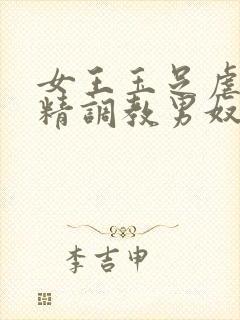 女王玉足虐
精調教男奴
李吉申